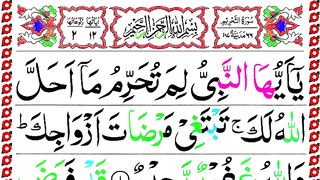 سُوْرَةُ التَّحْرِيْمِ
بِسْمِ اللّٰهِ الرَّحْمٰنِ الرَّحِيْمِ
يٰٓاَيُّهَا النَّبِيُّ لِمَ تُحَرِّمُ مَآ اَحَلَّ
اللّٰهُ لَكَ ۚ تَبْتَغِيْ مَرْضَاتَ اَزْوَاجِكَ ؕ
وَاللّٰهُ غَفُوْرٌ رَّحِيْمٌ ۝۱ قَدْ فَرَضَ